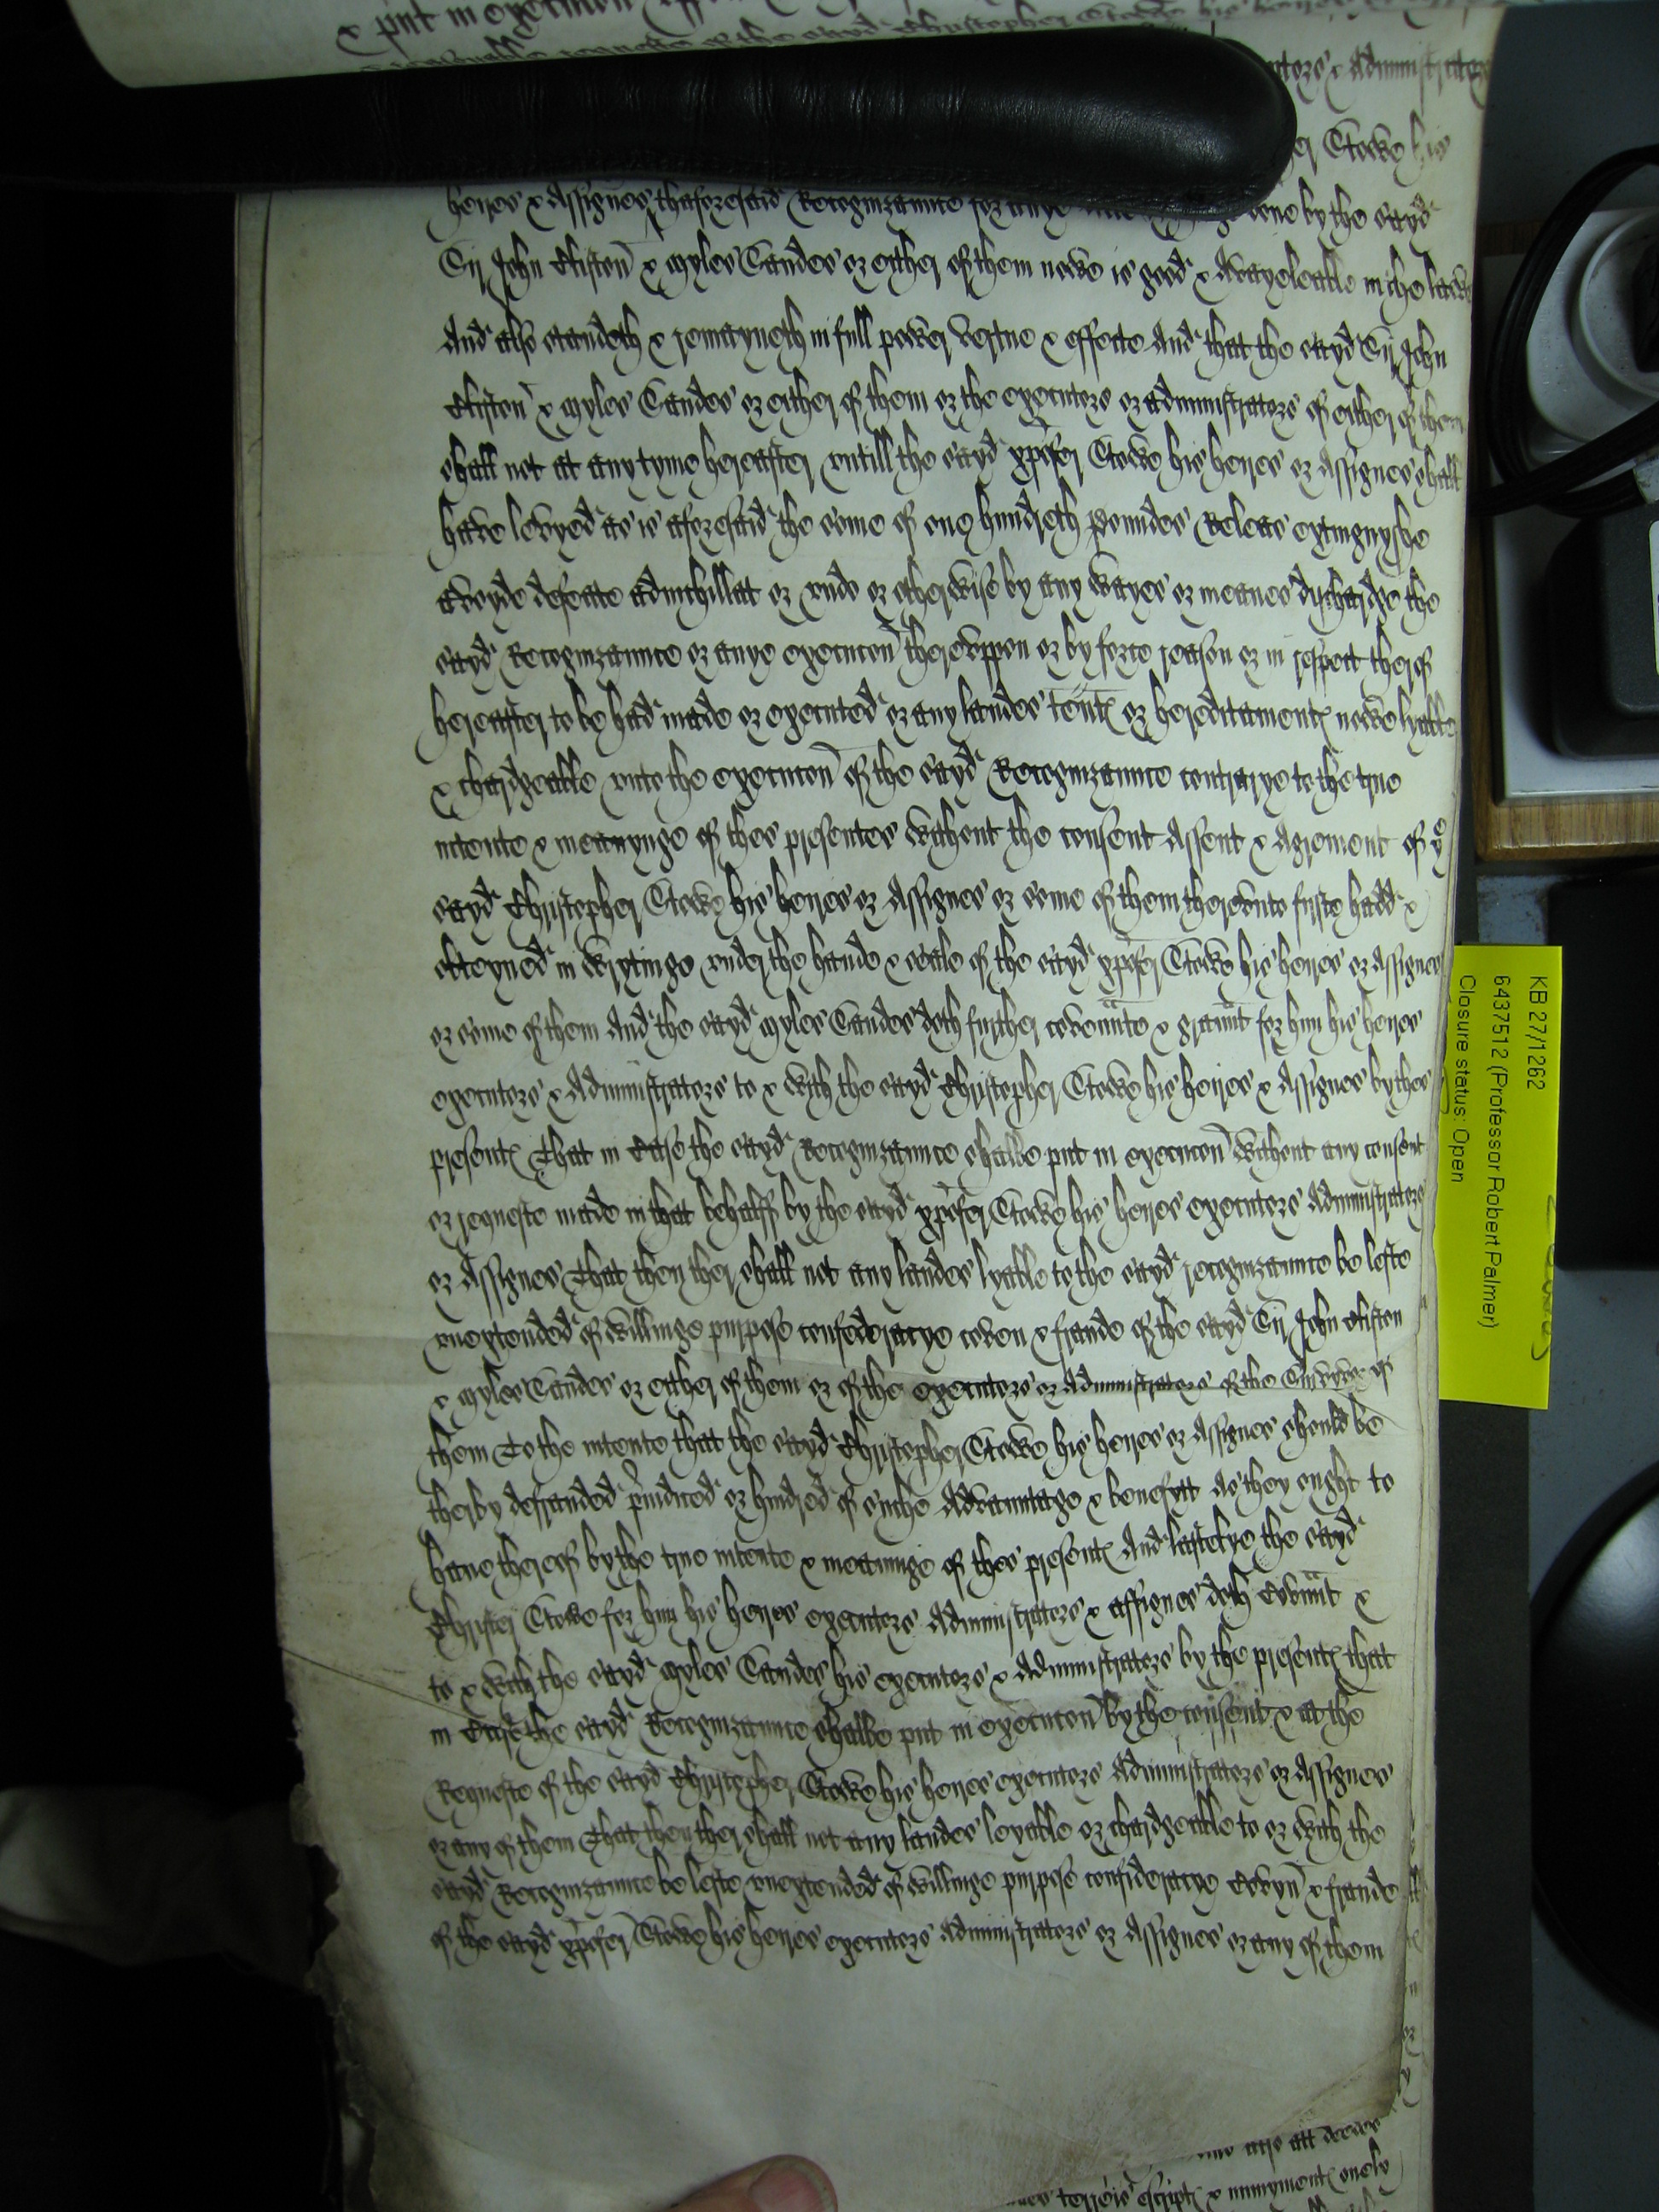 & put in execucion
reasonable requeste of the sayd Christepher Stowe his heires
& Administratozs
Stowe his
heires & Assignes thaforesaid Recognizaunce for anye done by the sayd
Sir John Clifton & Myles Sandes or either of them nowe is good & Avayleable in the lawe
And also standeth & remayneth in full power vertue & effecte And that the sayd Sir John
Clifton & Myles Sandes or either of them or the executors or administrators of either of them
shall not at any tyme hereafter vntill the sayd xpofer Stowe his heires or Assignes shall
haue levyed as is aforesaid the some of one hundreth poundes Release extinguyshe
avoyde defeate adnichillat or vndo or otherwise by any wayes or meanes dischardge the
sayd Recognizaunce or anye execucon therevppon or by force reason or in respect therof
hereafter to be had made or executed or any landes tents or hereditaments nowe lyable
& chardgeable vnto the execucon of the sayd Recognizaunce contrarye to the true
intente & meanynge of thes presentes without the consent Assent & Agrement of ye
sayd Christepher Stowe his heires or Assignes or some of them therevnto firste hadd &
atteyned in wrytinge vnder the hande & seale of the sayd xpofer Stowe his heires or Assignes
or some of them And the sayd Myles Sandes doth further covennte & graunt for him his heires
executors & Administrators to & with the sayd Christepher Stowe his heires & Assignes by thes
presents That in Case the sayd Recognizaunce shalbe put in execucon without any consent
or requeste made in that behalff by the sayd xpofer Stowe his heires executors Administrators
or Assignes That then ther shall not any landes lyable to the sayd recognizaunce be lefte
vnextended of willinge purpose confederacye coven & fraude of the sayd Sir John Clifton
& Myles Sandes or either of them or of the executors or Administrators of the Survyvor of
them To the intente that the sayd Christepher Stowe his heires or Assignes should be
therby defrauded preiudiced or hindred of suche Advauntage & benefytt As they ought to
haue therof by the true intente & meaninge of thes presents And lastelye the sayd
Christofer Stowe for him his heires executors Administrators & assignes doth Covennt &
to & with the sayd Myles Sandes his executors & Administrators by the presents that
in Case the sayd Recognizaunce shalbe put in execucon by the consent & at the
Requeste of the sayd Christepher Stowe his heires executors Administrators or Assignes
or any of them That then ther shall not any landes leyable or chardgeable to or with the
sayd Recognizaunce be lefte vnextended of willinge purpose confideracye Covyn & fraude
of the sayd xpofer Stowe his heires executors Administrators or Assignes or any of them
KB 27/1262
6437512 (Professor Robert Palmer)
Closure status: Open
all
script & mynyments